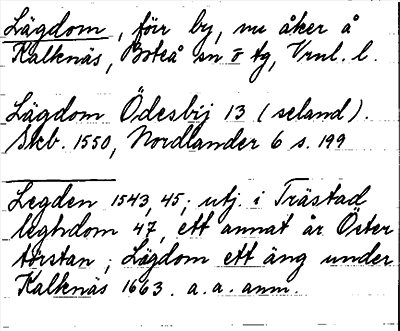 Lägdom, förr by, nu åker å
Kalknäs, Boteå sn o tg, Vrnl. l.
Lägdom Ödesbÿ 13 (seland).
Skb. 1550, Nordlander 6 s. 199
Legden 1543, 45; utj. i Trästad
leghdom 47, ett annat år Öster
torstan; Lägdom ett äng under
Kalknäs 1663. a. a. anm.